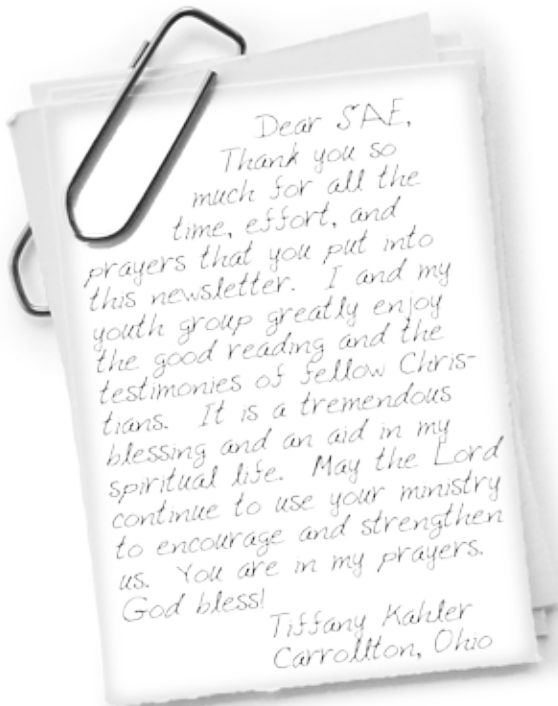 Dear SAE,
Thank you so
much for all the
time, effort, and
prayers that you put into
this newsletter. I and my
youth group greatly enjoy
the good reading and the
testimonies of fellow Chris-
tians. It is a tremendous
blessing and an aid in my
spiritual life. May the Lord
continue to use your ministry
to encourage and strengthen
us. You are in my prayers.
God bless!
Tiffany Kahler
Carrollton, Ohio